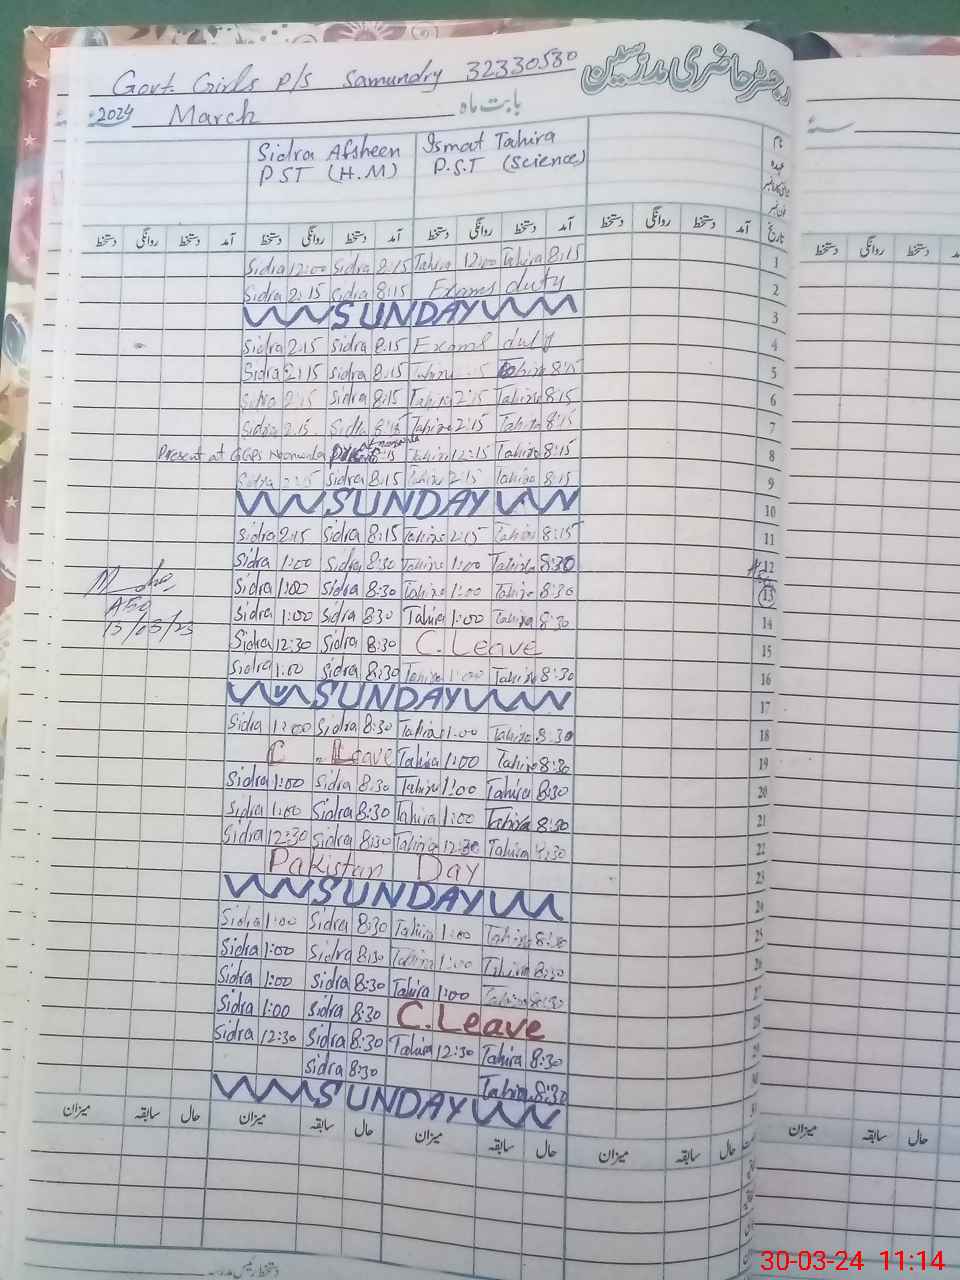 Govt. Girls P/S Samundry 32330530 رجسٹر حاضری مدرسین
2024 March بابت ماہ
Sidra Afsheen Ismat Tahira
PST (H.M) P.S.T (Science)
دستخط روانگی دستخط آمد دستخط روانگی دستخط آمد دستخط روانگی دستخط آمد دستخط روانگی دستخط آمد تاریخ دستخط روانگی دستخط
Sidra 12:00 Sidra 8:15 Tahira 12:00 Tahira 8:15 1
Sidra 2:15 Sidra 8:15 Exams duty 2
SUNDAY 3
Sidra 2:15 Sidra 8:15 Exams duty 4
Sidra 2:15 Sidra 8:15 Tahira 8:15 5
Sidra 2:15 Sidra 8:15 Tahira 2:15 Tahira 8:15 6
Sidra 2:15 Sidra 8:15 Tahira 2:15 Tahira 8:15 7
Present at GGPS 8:15 Tahira 12:15 Tahira 8:15 8
Sidra 2:15 Sidra 8:15 Tahira 2:15 Tahira 8:15 9
SUNDAY 10
Sidra 2:15 Sidra 8:15 Tahira 2:15 Tahira 8:15 11
Sidra 1:00 Sidra 8:30 Tahira 1:00 Tahira 8:30 12
Sidra 1:00 Sidra 8:30 Tahira 1:00 Tahira 8:30 13
Sidra 1:00 Sidra 8:30 Tahira 1:00 Tahira 8:30 14
13/03/23
Sidra 12:30 Sidra 8:30 C. Leave 15
Sidra 1:00 Sidra 8:30 Tahira 1:00 Tahira 8:30 16
SUNDAY 17
Sidra 1:00 Sidra 8:30 Tahira 1:00 Tahira 8:30 18
C. Leave Tahira 1:00 Tahira 8:30 19
Sidra 1:00 Sidra 8:30 Tahira 1:00 Tahira 8:30 20
Sidra 1:00 Sidra 8:30 Tahira 1:00 Tahira 8:30 21
Sidra 12:30 Sidra 8:30 Tahira 12:30 Tahira 8:30 22
Pakistan Day 23
SUNDAY 24
Sidra 1:00 Sidra 8:30 Tahira 1:00 Tahira 8:30 25
Sidra 1:00 Sidra 8:30 Tahira 1:00 Tahira 8:30 26
Sidra 1:00 Sidra 8:30 Tahira 1:00 Tahira 8:30 27
Sidra 1:00 Sidra 8:30 C. Leave 28
Sidra 12:30 Sidra 8:30 Tahira 12:30 Tahira 8:30 29
Sidra 8:30 Tahira 8:30 30
SUNDAY 31
میزان سابقہ حال میزان سابقہ حال میزان سابقہ حال میزان سابقہ حال میزان سابقہ حال
30-03-24 11:14